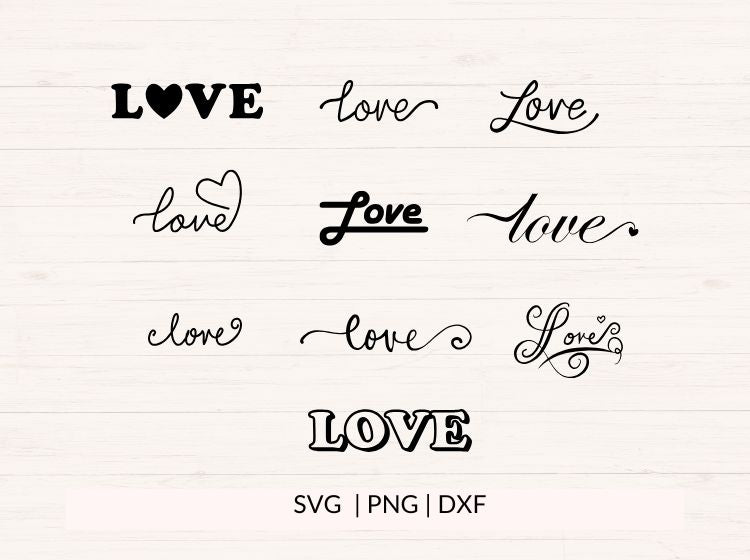 LOVE love Love
love Love love
love love Love
LOVE
SVG | PNG | DXF